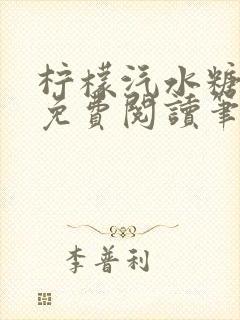 柠檬汽水糖
免費閱讀筆
李普利